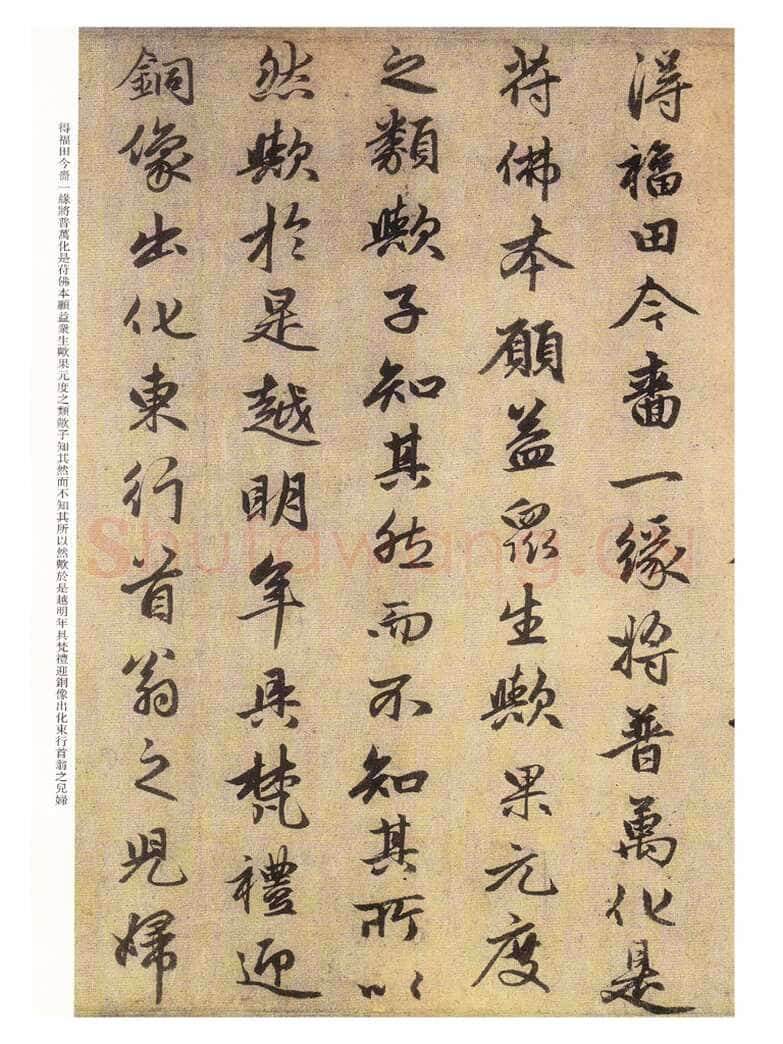 得福田今嗇一緣將普萬化是
荷佛本願益衆生歟果元度
之類歟子知其然而不知其所以
然歟於是越明年具梵禮迎
銅像出化東行首翁之兒婦
得福田今嗇一緣將普萬化是荷佛本願益衆生歟果元度之類歟子知其然而不知其所以然歟於是越明年具梵禮迎銅像出化東行首翁之兒婦
Shufawang.Cn